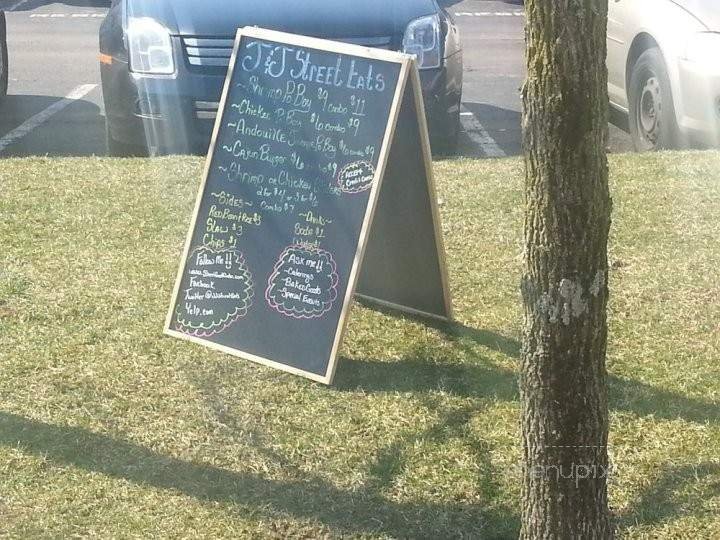 J&J Street Eats
~Shrimp Po Boy $9 combo $11
~Chicken Po Boy $6 combo $9
~Andouille Sausage Po Boy $6 combo $9
~Cajun Burger $6 $9
~Shrimp or Chicken
2 for $4 or 3 for $5
Combo $7
Accept
Credit Cards
~Sides~
Red Bean & Rice $3
Slaw $3
Chips $1
~Drinks~
Soda $1
Water $1
Follow Me!!
Facebook
Twitter
Yelp.com
Ask me!!
~Caterings
~Baked Goods
~Special Events
menupix